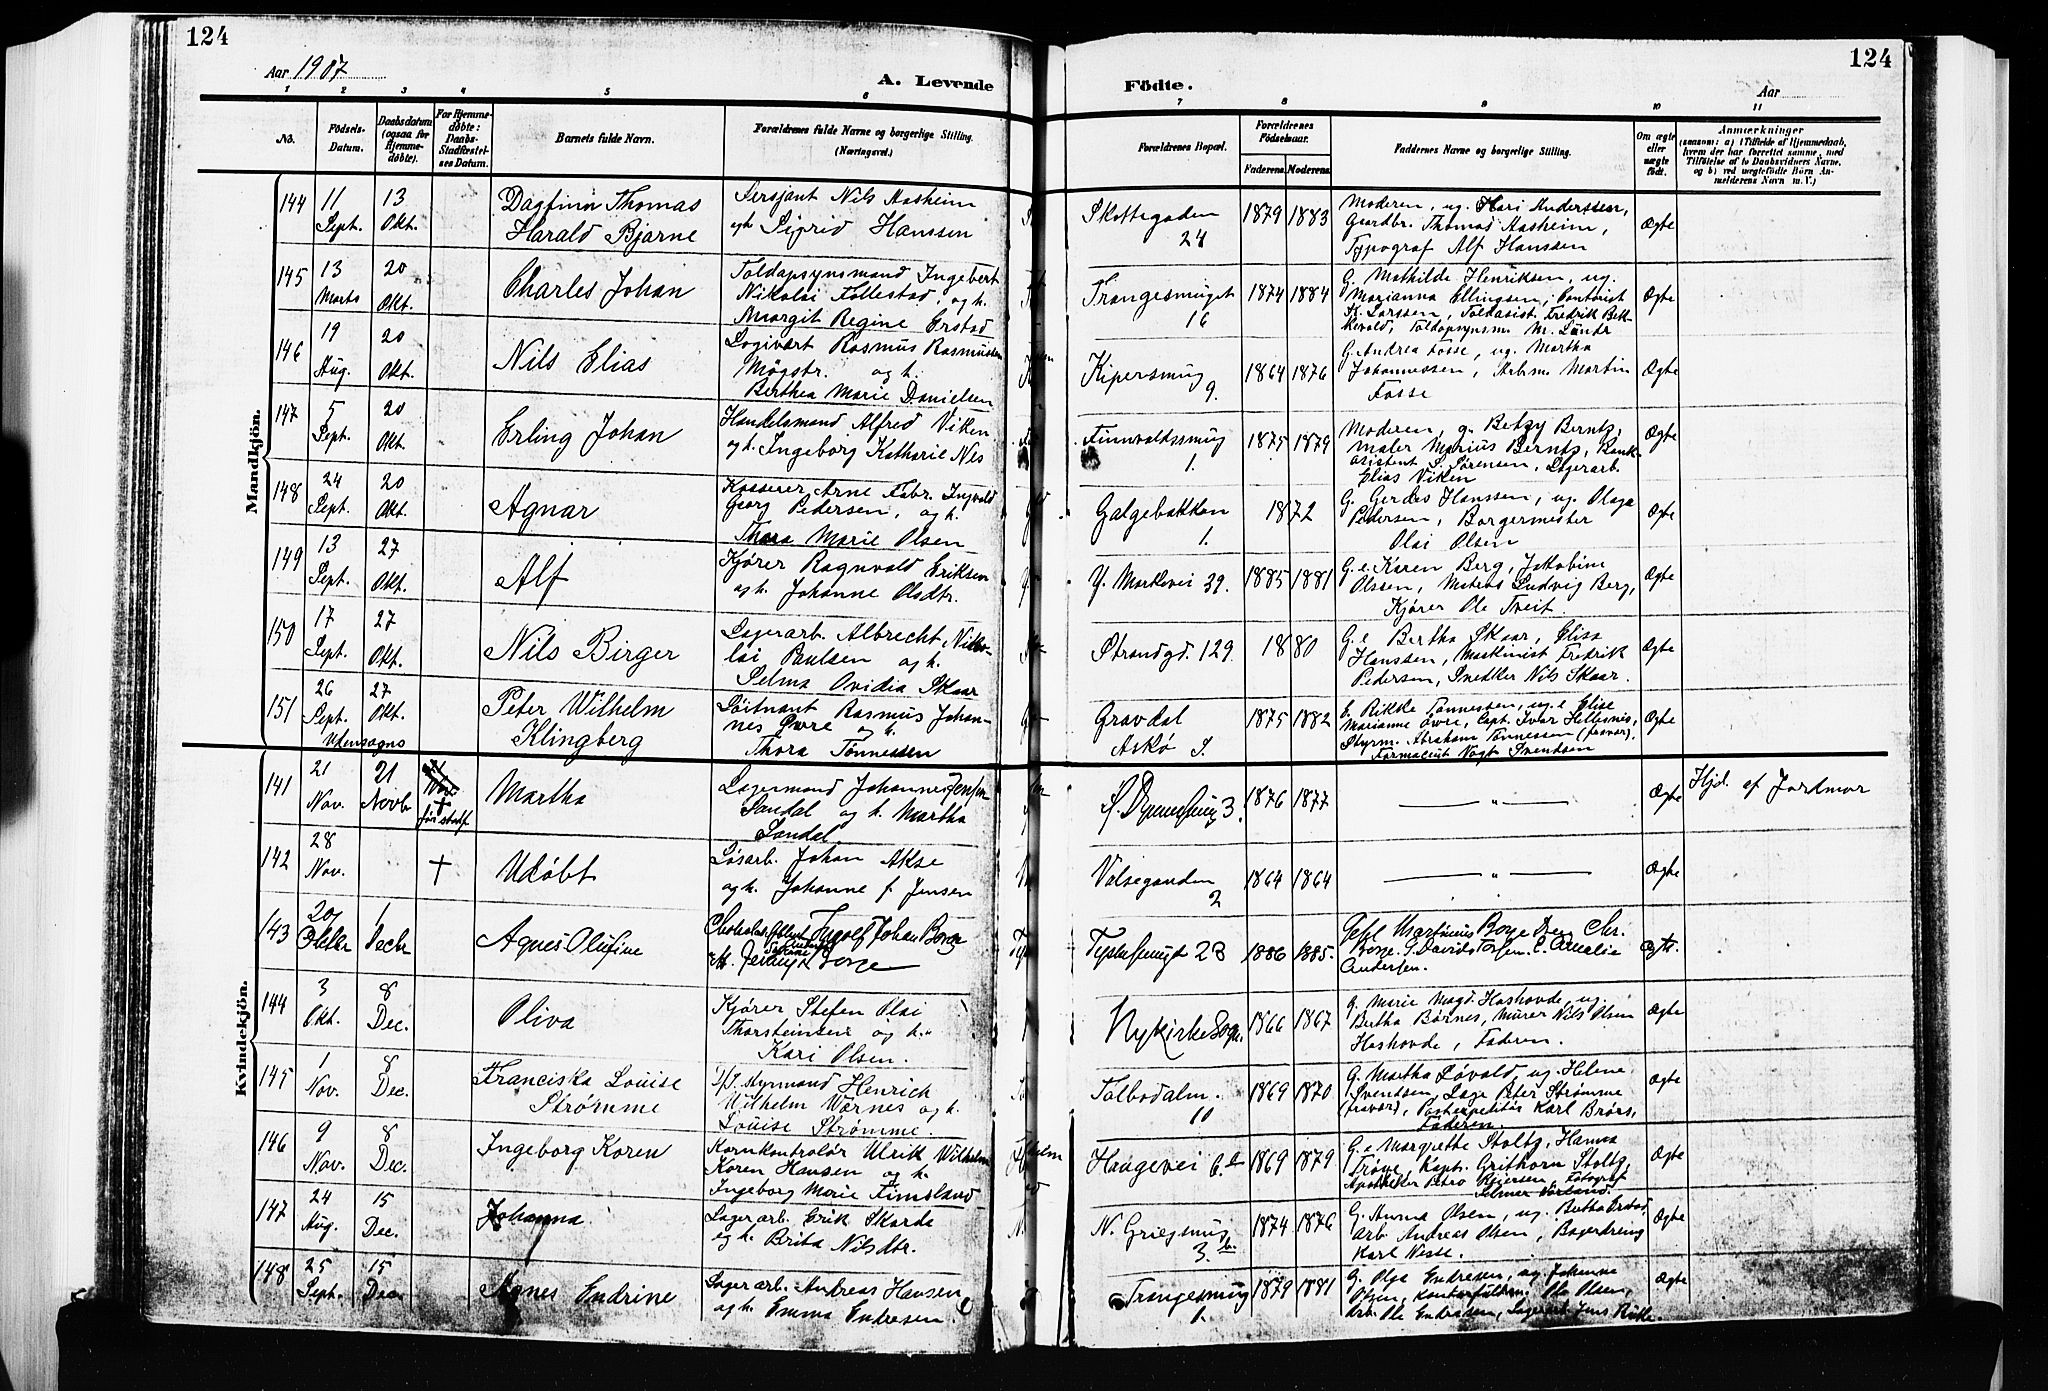 124
124
Aar 1907
A. Levende
Födte.
Aar
1 2 3 4 5 6 7 8 9 10 11
No.
Födsels-
Datum.
Daabsdatum
(ogsaa for
Hjemme-
døbte).
For Hjemme-
døbte:
Daabs-
Stadfæstel-
ses Datum.
Barnets fulde Navn.
Forældrenes fulde Navne og borgerlige Stilling.
(Næringsvei.)
Forældrenes Bopæl.
Forældrenes
Födselsaar.
Faderens. Moderens.
Faddernes Navne og borgerlige Stilling.
Om ægte
eller
uægte
födt.
Anmærkninger
(saasom: a) i Tilfælde af Hjemmedaab,
hvem der har forrettet samme, med
Tilföielse af to Daabsvidners Navne,
og b) ved uægtefödte Börn An-
melderens Navn m. V.)
Mandkjön.
144 11 Sept. 13 Okt.
Dagfinn Thomas
Harald Bjarne
Sersjant Nils Aasheim
og h. Sigrid Hanssen
Skottegaden
24
1879 1883
Moderen, ug. Kari Anderssen,
Gaardbr. Thomas Aasheim,
Typograf Alf Hanssen
Ægte
145 13 Marts 20 Okt.
Charles Johan
Toldopsynsmand Ingebert
Nikolai Follestad, og h.
Margit Regine Erstad
Trangesmuget
16
1874 1884
G. Mathilde Henriksen, ug.
Marianna Ellingsen, Contorist
K. Larssen, Toldasist. Fredrik Bek-
kevold, Toldopsynsm. M.
Ægte
146 19 Aug. 20 Okt.
Nils Elias
Logivært Rasmus Rasmussen
Mögstr. og h.
Berthea Marie Danielsen
Kipersmug
9.
1864 1876
G. Andrea Fosse, ug. Martha
Johannessen, Arbm. Martin
Fosse
Ægte
147 5 Sept. 20 Okt.
Erling Johan
Handelsmand Alfred Viken
og h. Ingeborg Katharie Nes
Finnvaldssmug
1.
1875 1879
Moderen, g. Betzy Berntz,
maler Marius Berntz, Bank-
asistent S. Sørensen, Lagerarb.
Elias Viken
Ægte
148 24 Sept. 20 Okt.
Agnar
Kasserer Arne Fabr. Ingvald
Georg Pedersen, og h.
Thora Marie Olsen
Galgebakken
1.
1872
G. Gerdes Hanssen, ug. Olaga
Pedersen, Borgermester
Olai Olsen
Ægte
149 13 Sept. 27 Okt.
Alf
Kjører Ragnvald Eriksen
og h. Johanne Olsdtr.
Y. Markevei 39.
1885 1881
G. e. Karen Berg, Jakobine
Olssen, Matros Ludvig Berg,
Kjører Ole Tveit.
Ægte
150 17 Sept. 27 Okt.
Nils Birger
Lagerarb. Albrecht Niko-
lai Paulsen og h.
Selma Ovidia Skaar
Strandgd. 129.
1880
G. e Bertha Skaar, Elisa
Hanssen, Maskinist Fredrik
Pedersen, Snedker Nils Skaar.
Ægte
151 26 Sept. 27 Okt.
Utensogns
Peter Wilhelm
Klingberg
Löitnant Rasmus Johan-
nes Øvre og h.
Thora Tønnessen
Gravdal
Askø S.
1875 1882
E. Rikke Tønnessen, ug. e Elise
Marianne Øvre, Capt. Ivar Hellesnis,
Styrm. Abraham Tønnessen (fravær).
Farmaceut Vogt Svendsen
Ægte
Kvindekjön.
141 21 Nov. 21 Novb
Martha
Lagermand Johannes Jensen
Sandal og h. Martha
Sandal
1876 1877
— " —
Ægte
Hjd. af Jordmor
142 28 Nov. +
Udöbt
Løsarb. Johan Akse
og h. Johanne f. Jensen
2
1864 1864
— " —
Ægte
143 20 Oktbr 1 Decbr
Agnes Olufine
Ingolf Johan Borge
Borge
23
1886 1885.
Martinus Borge
Borge. C. Amalie
Andersen.
Ægte.
144 3 Okt. 8 Dec.
Oliva
Kjører Stefen Olai
Thorsteinsen og h.
Kari Olsen.
Nykirke Sogn.
1866 1867
G. Marie Magd. Hashovde, ug.
Bertha Børnes, Murer Nils Olsen
Hashovde, Faderen.
Ægte
145 1 Nov. 8 Dec.
Franciska Louise
Strømme
Styrmand Henrich
Wilhelm Wørnes og h.
Louise Strømme.
Tolbodalm.
10
1869 1870
G. Martha Løvold, ug. Helene
Svendsen, Læge Peter Strømme
(fravær), Postexpeditør Karl Brørs,
Faderen.
Ægte
146 9 Nov. 8 Dec.
Ingeborg Koren
Kornkontrolør Ulrik Wilhelm
Koren Hansen og h.
Ingeborg Marie Fimsland
Haugevei 6.a
1869 1879
G. e Margrette Stoltz, Hanna
Trøye, Kapt. Grithorn Stoltz,
Apotheker Petro Fotograf
Selmer
Ægte
147 24 Aug. 15 Dec.
Johanna
Lagerarb. Erik Skarde
og h. Brita Nilsdtr.
N. Griegsmug
3.b.
1874 1876
G. Anna Olsen, ug. Bertha
Arb. Andreas Olsen, Bagerdreng
Karl Nesse.
Ægte
148 25 Sept. 15 Dec.
Agnes Endrine
Lagerarb. Andreas Hansen
og h. Emma Endresen.
Trangesmug
1.
1879 1881
G. Olga Endresen, ug. Johanne
Olsen, Ole Olsen,
Arb. Ole Endresen, Lagerarb. Jens
Ægte